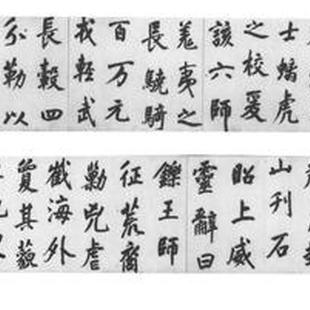 士螭虎
之校爰
該六師
羌夷之
長驍騎
百万元
戎輕武
長轂四
分勒以
山刊石
昭上威
靈辭曰
鑠王師
征荒裔
勦兇虐
截海外
敻其藐